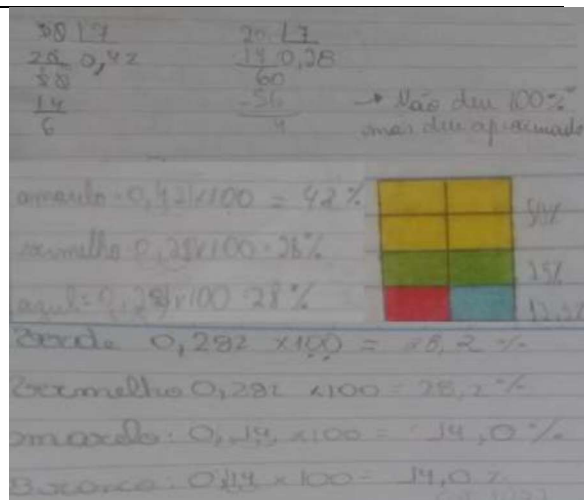 30 | 7
28 0,42
20
14
6
20 | 7
14 0,28
60
-56
4
→ Não deu 100%
mas deu aproximado
amarelo = 0,42x100 = 42%
vermelho 0,28x100 = 28%
azul = 0,28x100 28%
50%
25%
12,5%
Verde 0,282 x100 = 28,2 %
Vermelho 0,282 x100 = 28,2 %
amarelo: 0,14 x100 = 14,0 %
Branco: 0,14 x 100 = 14,0 %